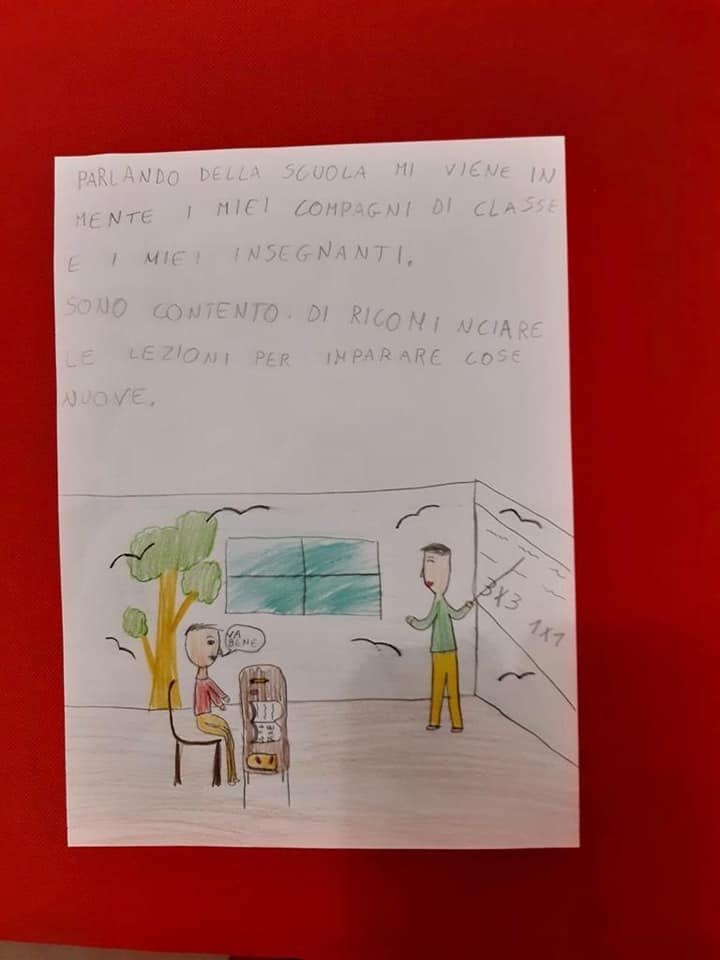 PARLANDO DELLA SCUOLA MI VIENE IN
MENTE I MIEI COMPAGNI DI CLASSE
E I MIEI INSEGNANTI.
SONO CONTENTO. DI RICOMINCIARE
LE LEZIONI PER IMPARARE COSE
NUOVE.
3X3
1X1
VA
BENE